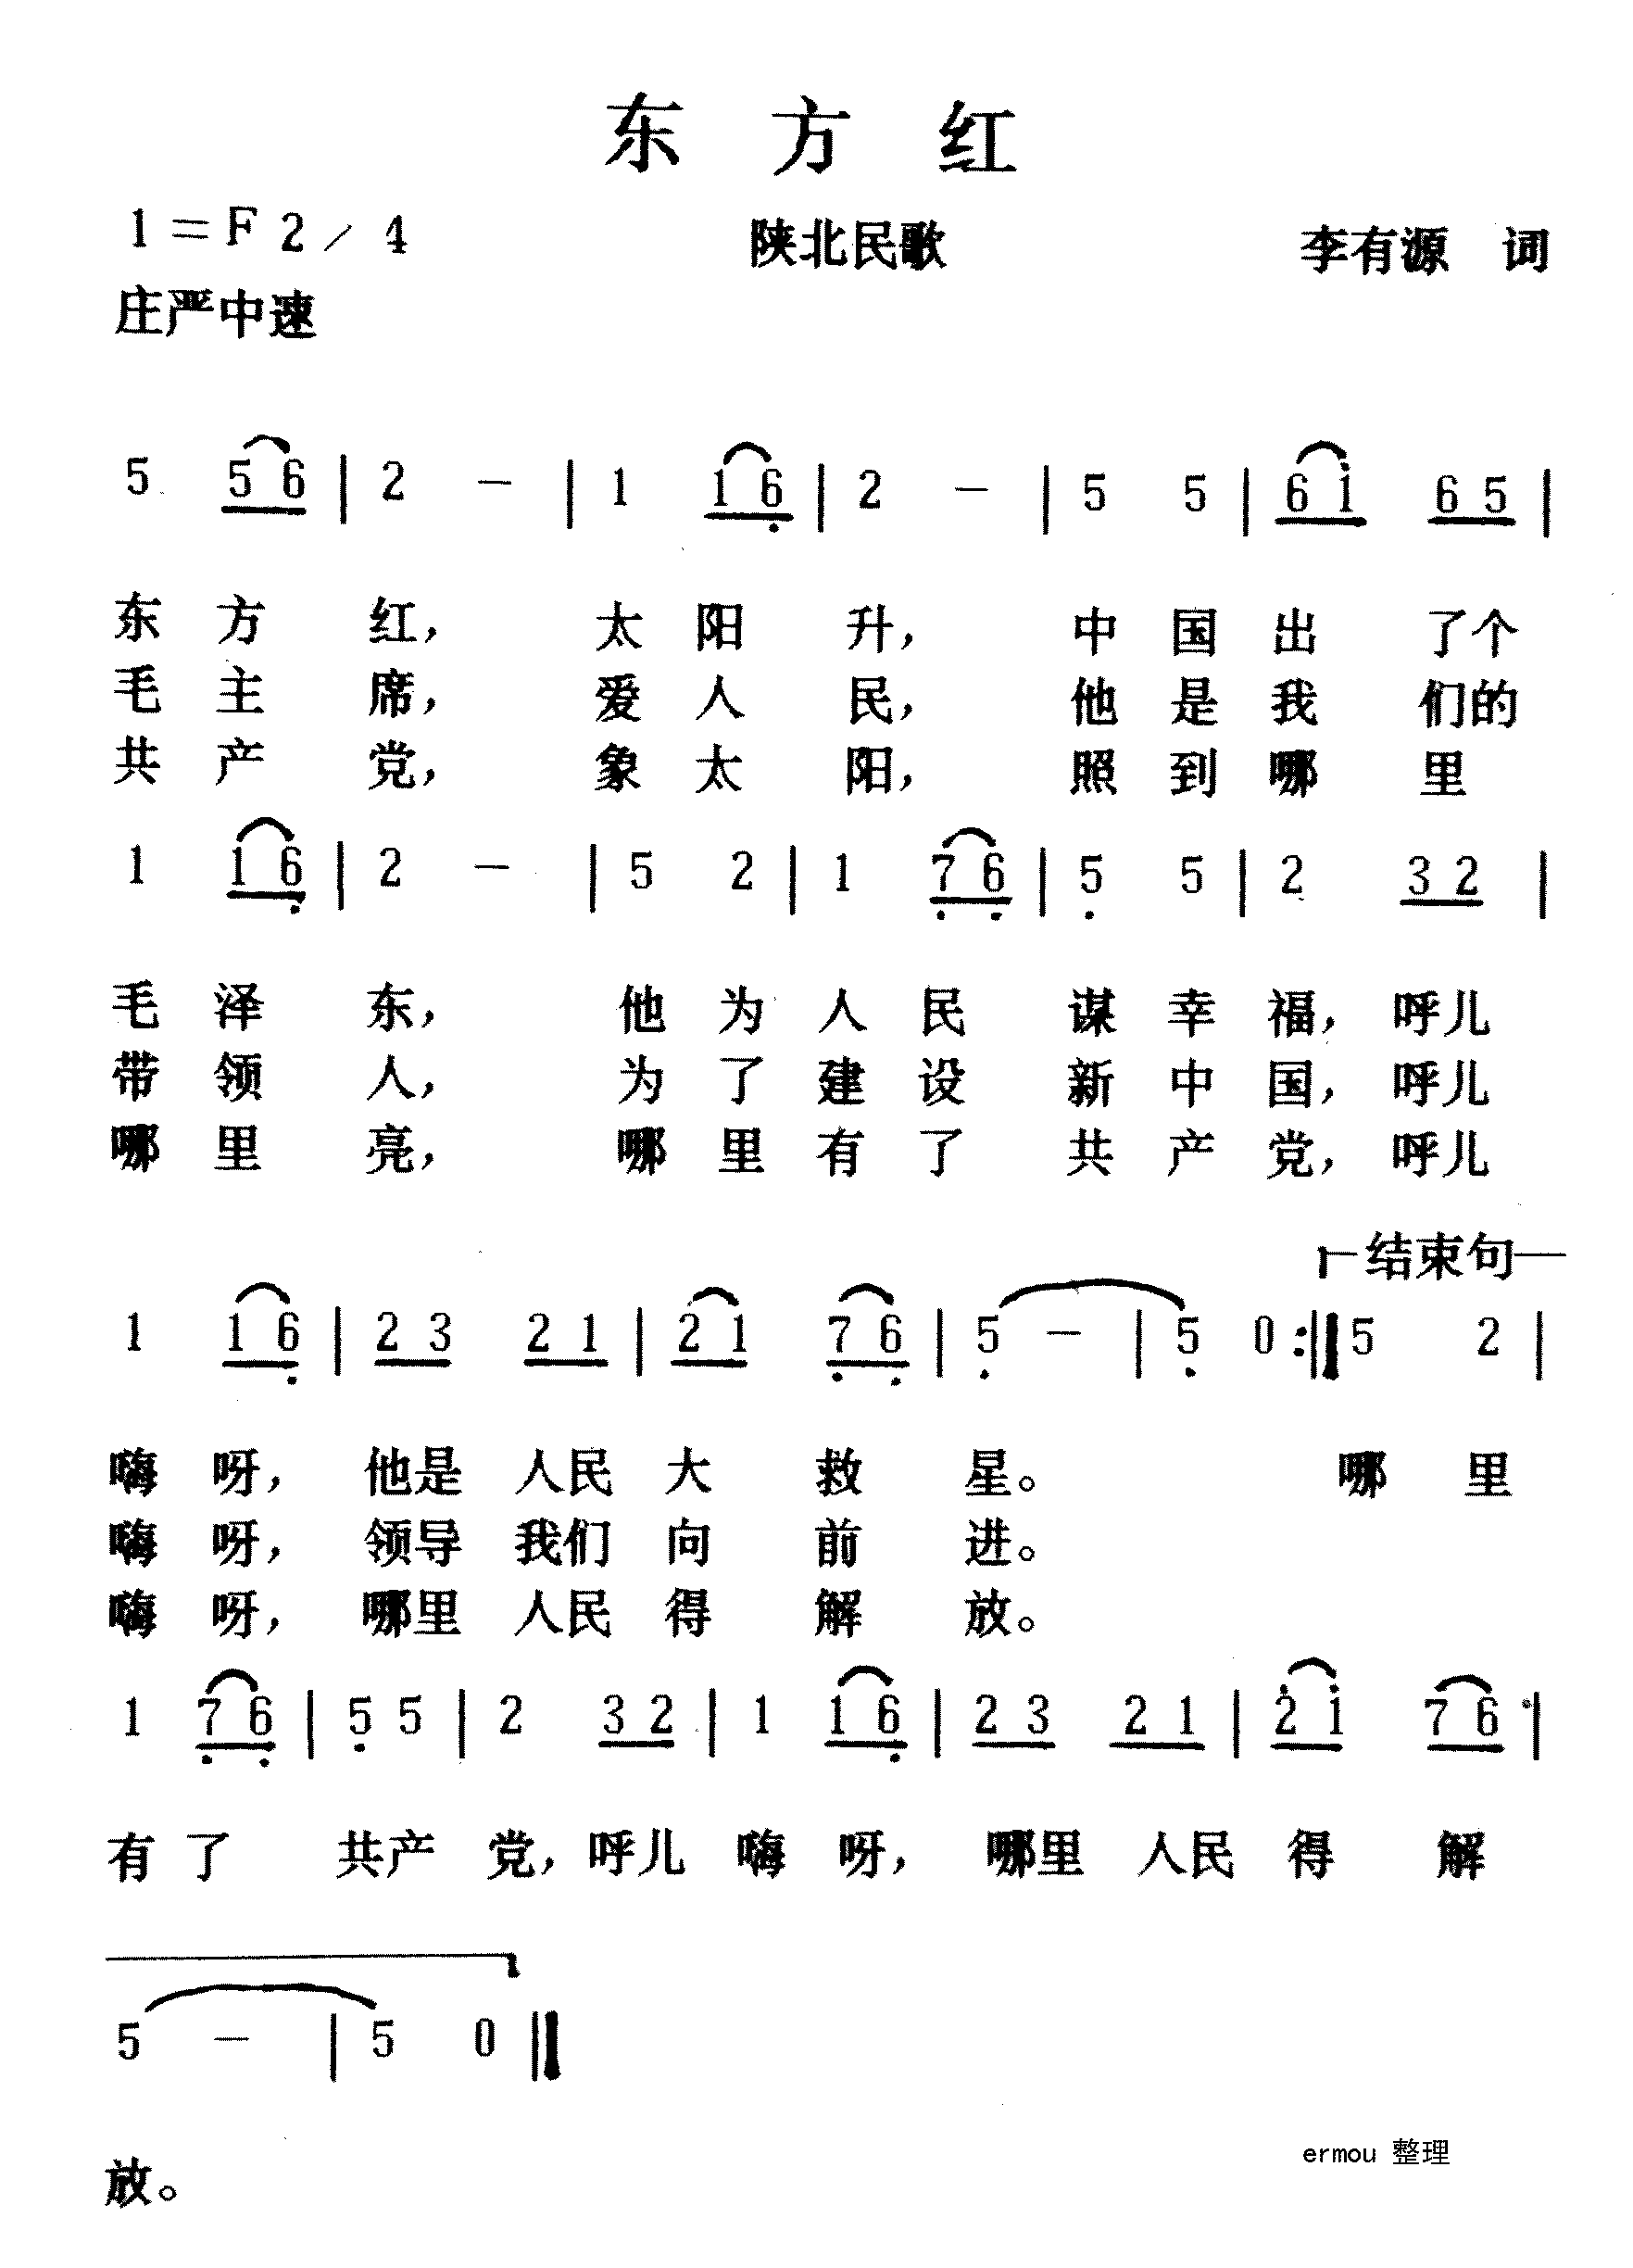 东 方 红
1＝F 2／4 陕北民歌 李有源 词
庄严中速
5 5 6 | 2 － | 1 1 6̣ | 2 － | 5 5 | 6 1̇ 6 5 |
东 方 红， 太 阳 升， 中 国 出 了个
毛 主 席， 爱 人 民， 他 是 我 们的
共 产 党， 象 太 阳， 照 到 哪 里
1 1 6̣ | 2 － | 5 2 | 1 7̣ 6̣ | 5̣ 5 | 2 3 2 |
毛 泽 东， 他 为 人 民 谋 幸 福， 呼儿
带 领 人， 为 了 建 设 新 中 国， 呼儿
哪 里 亮， 哪 里 有 了 共 产 党， 呼儿
结束句
1 1 6̣ | 2 3 2 1 | 2 1 7̣ 6̣ | 5̣ － | 5̣ 0 :| 5 2 |
嗨 呀， 他是 人民 大 救 星。 哪 里
嗨 呀， 领导 我们 向 前 进。
嗨 呀， 哪里 人民 得 解 放。
1 7̣ 6̣ | 5̣ 5 | 2 3 2 | 1 1 6̣ | 2 3 2 1 | 2̇ 1̇ 7 6 |
有 了 共产 党， 呼儿 嗨 呀， 哪里 人民 得 解
5 － | 5 0 ‖
放。
ermou 整理